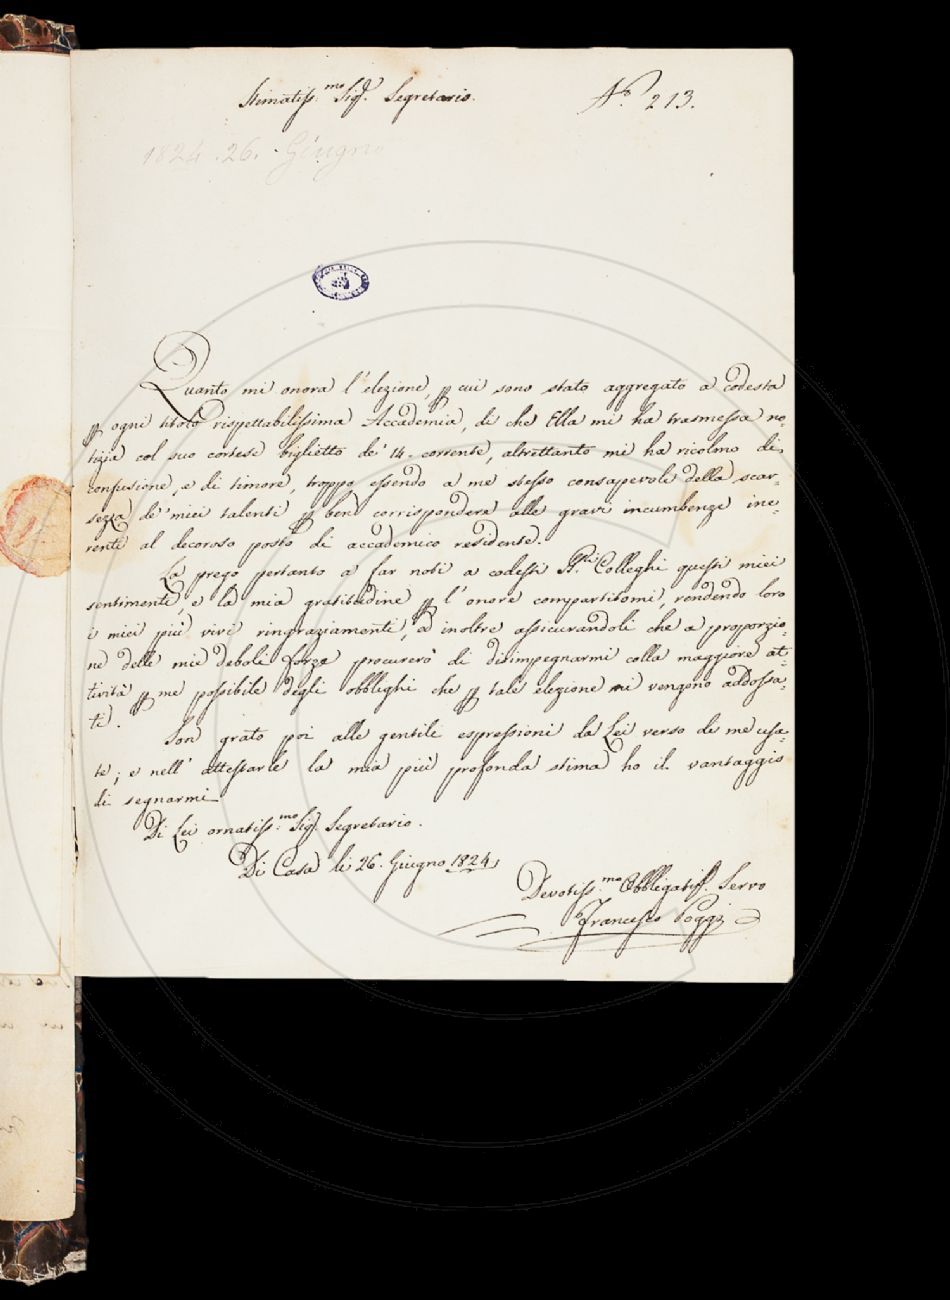 Stimatiss.mo Sig.r Segretario.
N.o 213.
1824. 26. Giugno
Quanto mi onora l'elezione, p cui sono stato aggregato a codesta
p ogni titolo rispettabilissima Accademia, di che Ella mi ha trasmessa no=
tizia col suo cortese biglietto de' 14. corrente, altrettanto mi ha ricolmo di
confusione, e di timore, troppo essendo a me stesso consapevole della scar=
sezza de' miei talenti p ben corrispondere alle gravi incumbenze ine=
renti al decoroso posto di accademico residente.
La prego pertanto a far noti a codesti Sig.ri Colleghi questi miei
sentimenti, e la mia gratitudine p l'onore compartitomi, rendendo loro
i miei più vivi ringraziamenti, ed inoltre assicurandoli che a proporzio=
ne delle mie deboli forze procurerò di disimpegnarmi colla maggiore at=
tività p me possibile degli obblighi che p tale elezione mi vengono addossa=
ti.
Son grato poi alle gentili espressioni da Lei verso di me usa=
te; e nell' attestarle la mia più profonda stima ho il vantaggio
di segnarmi
Di Lei ornatiss.mo Sig.r Segretario.
Di Casa li 26. Giugno 1824,
Devotiss.mo Obbligatiss. Servo
Francesco Poggi